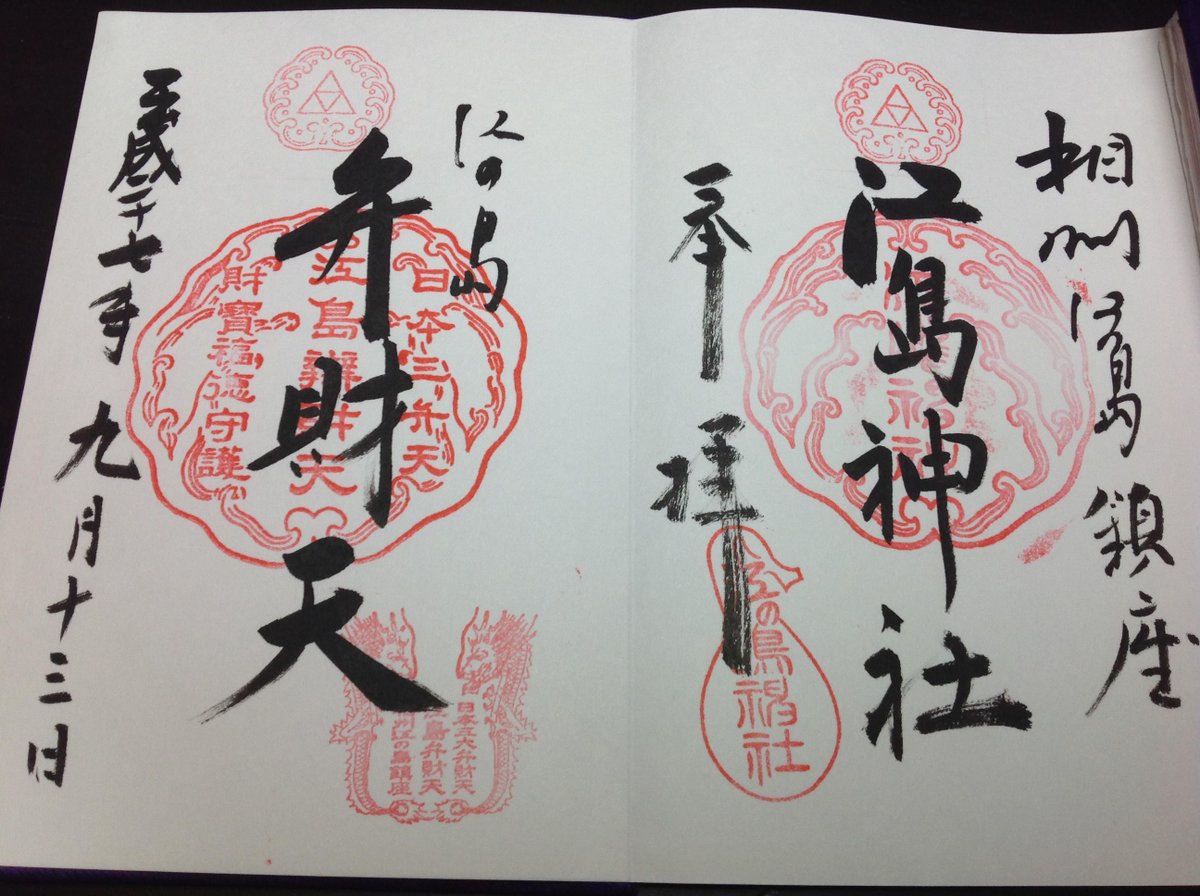 相州江島鎮座
江島神社
奉拝
江の島神社
江の島
弁財天
日本三弁天
江島辨財天
財寶福徳守護
日本三大弁財天
江島弁財天
相州江の島鎮座
平成二十七年九月十三日